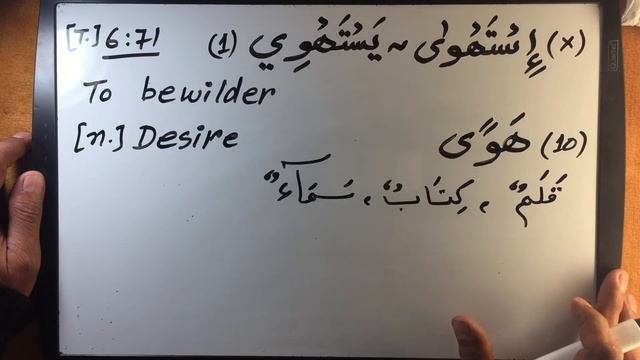 [T.] 6:71 (1) إِسْتَهْوٰى ~ يَسْتَهْوِي (x)
To bewilder
[n.] Desire هَوًى (10)
قَلَمٌ ، كِتَابٌ ، سَمَآءٌ